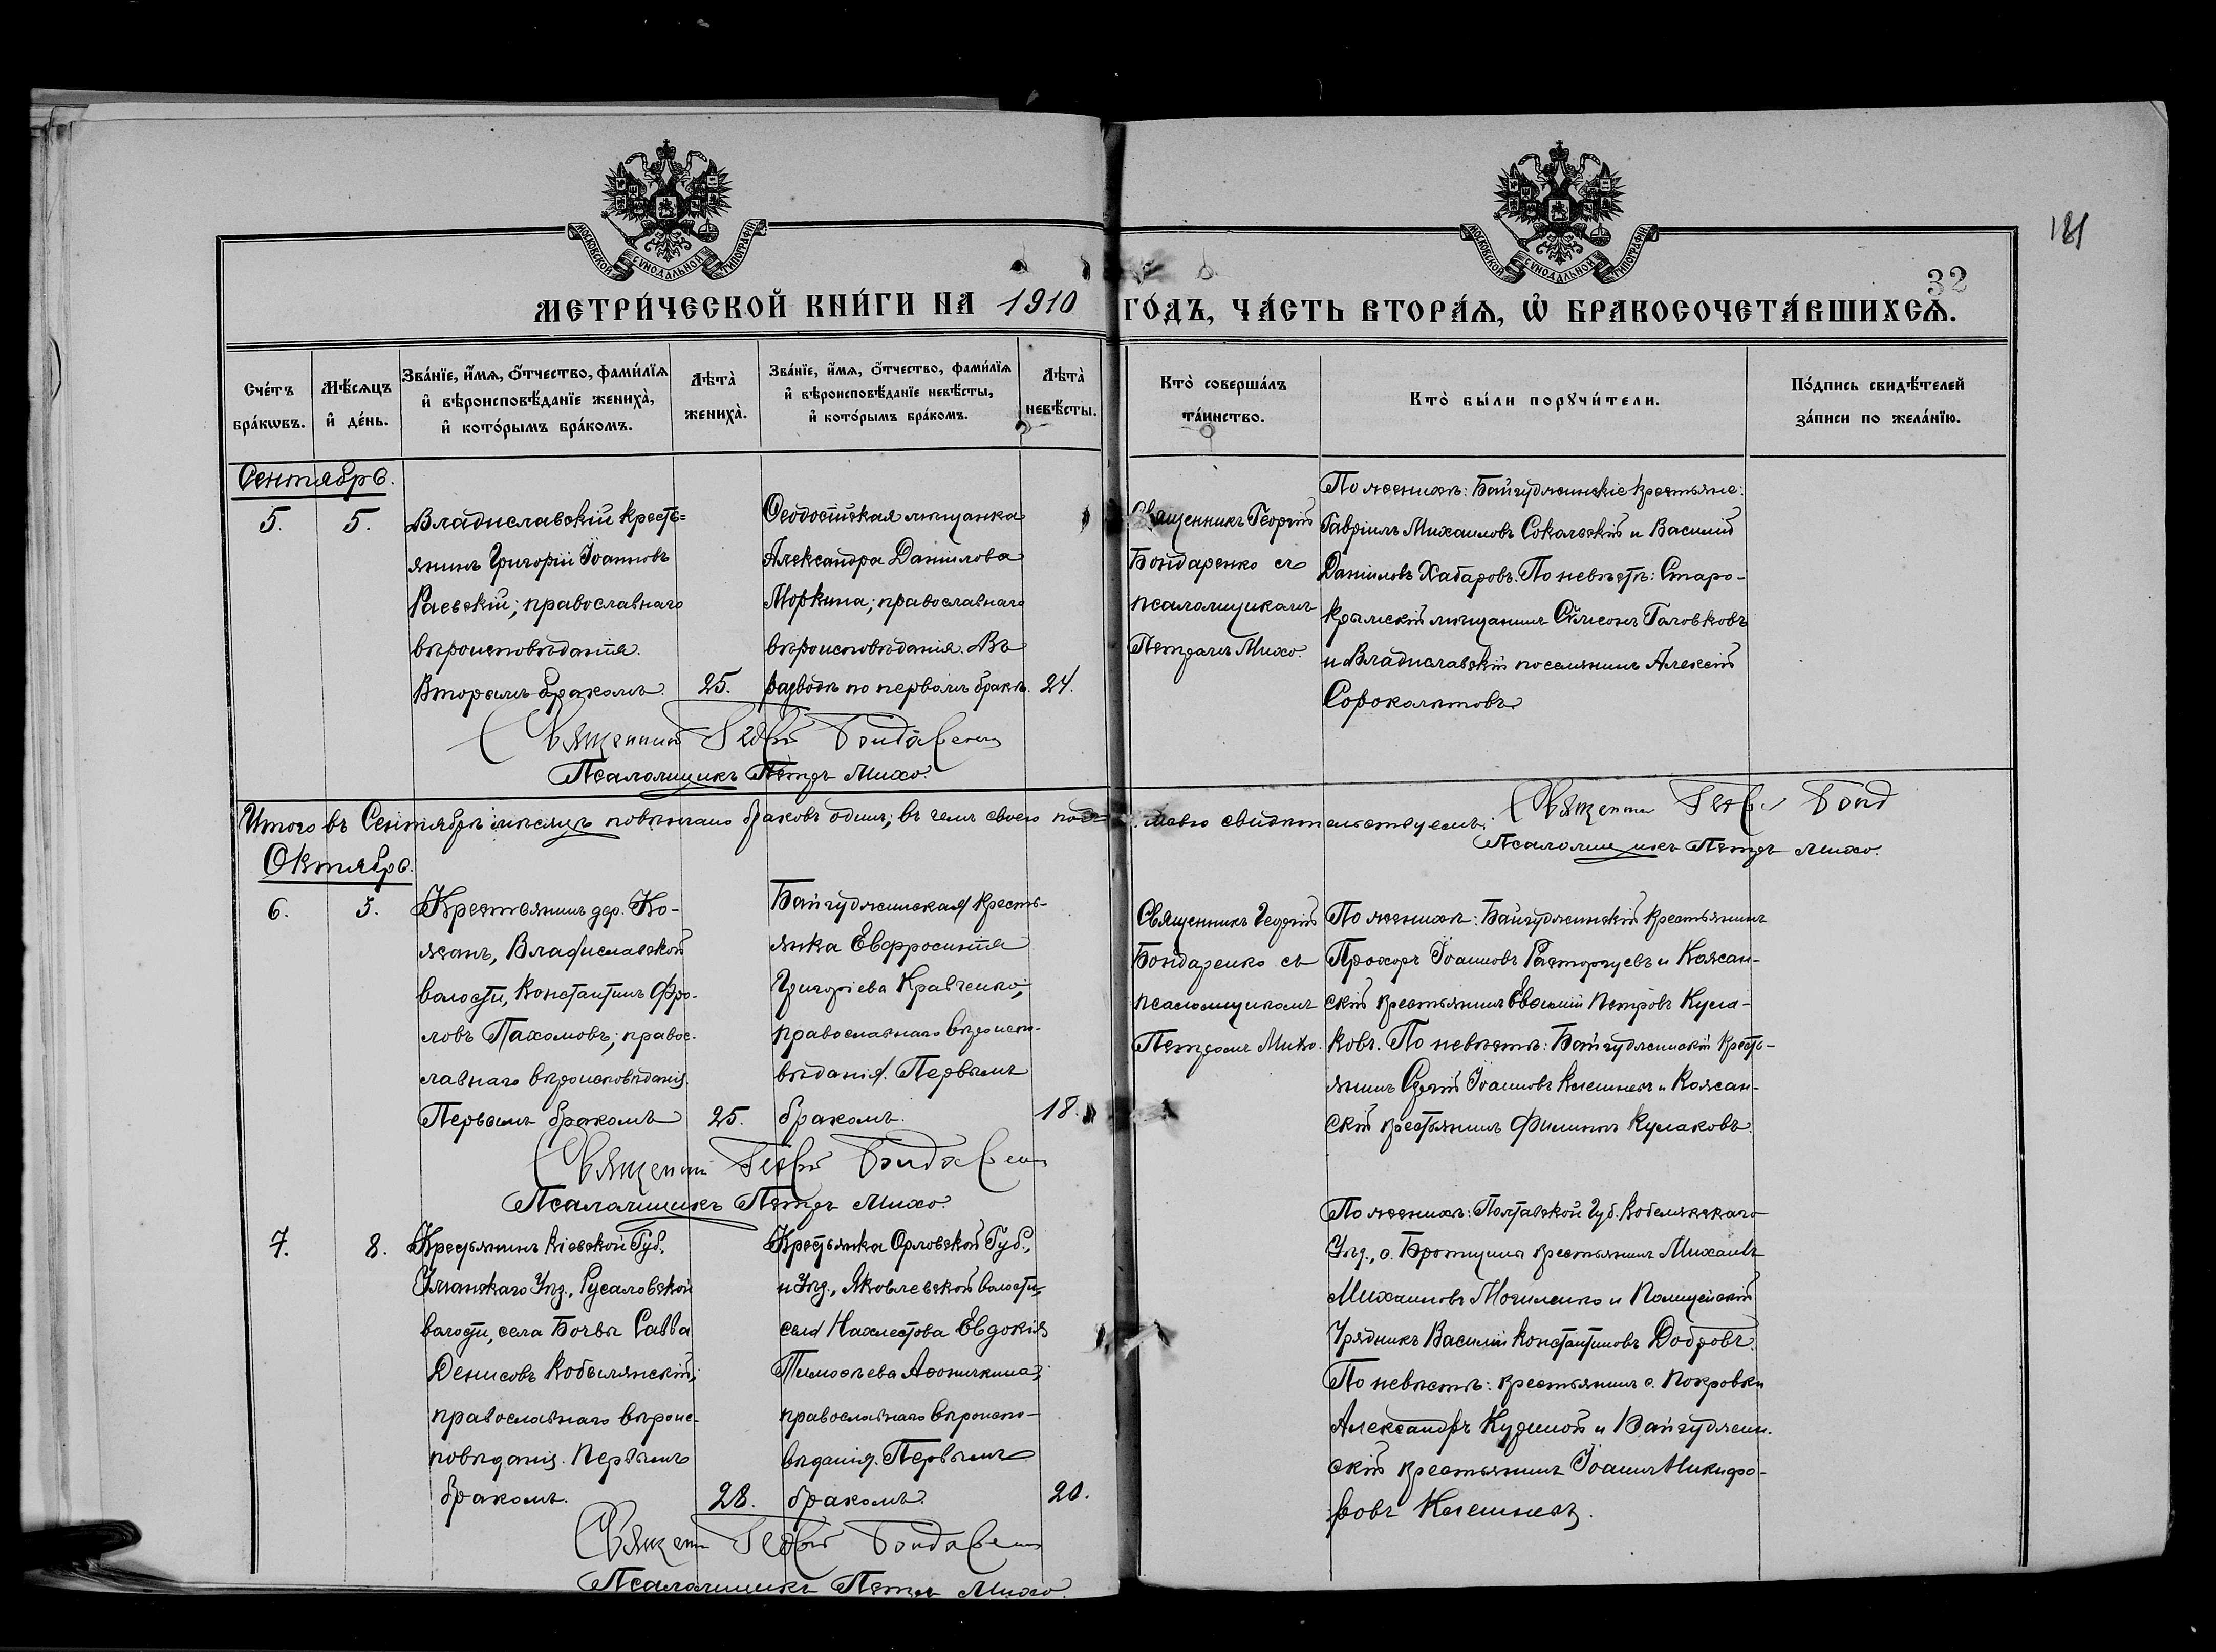 МОСКОВСКОЙ СУНОДАЛЬНОЙ ТИПОГРАФІИ
МОСКОВСКОЙ СУНОДАЛЬНОЙ ТИПОГРАФІИ
32
МЕТРИ́ЧЕСКОЙ КНИ́ГИ НА 1910 ГО́ДЪ, ЧА́СТЬ ВТОРА́Ѧ, Ѡ҆ БРАКОСОЧЕТА́ВШИХСѦ.
Сче́тъ бра́кѡвъ.
Мѣ́сѧцъ и҆ де́нь.
Зва́нїе, и҆́мѧ, ѻ҆́тчество, фами́лїѧ и҆ вѣроисповѣ́данїе жениха̀, и҆ кото́рымъ бра́комъ.
Лѣта̀ жениха̀.
Зва́нїе, и҆́мѧ, ѻ҆́тчество, фами́лїѧ и҆ вѣроисповѣ́данїе невѣ́сты, и҆ кото́рымъ бра́комъ.
Лѣта̀ невѣ́сты.
Кто̀ соверша́лъ та́инство.
Кто̀ бы́ли порꙋчи́тели.
По́дпись свидѣ́телей за́писи по жела́нїю.
Сентябрь.
5.
5.
Владиславскій кресть=
янинъ Григорій Іоанновъ
Раевскій; православнаго
вѣроисповѣданія.
Вторымъ бракомъ.
25.
Ѳеодосійская мѣщанка
Александра Данилова
Моркина; православнаго
вѣроисповѣданія. Въ
разводѣ по первомъ бракѣ.
24.
Священникъ Георгій
Бондаренко съ
псаломщикомъ
Петромъ Михо.
По женихѣ: Байгуджинскіе крестьяне:
Гавріилъ Михаиловъ Сокальскій и Василій
Даніиловъ Хабаровъ. По невѣстѣ: Старо-
крымскій мѣщанинъ Симеонъ Головковъ
и Владиславскій поселянинъ Алексій
Сорокалѣтовъ
Священникъ Георгій Бондаренко
Псаломщикъ Петръ Михо.
Итого въ Сентябрѣ мѣсяцѣ повѣнчано браковъ одинъ; въ чемъ своею под= свидѣтельствуемъ:
Священникъ Георгій Бонд
Псаломщикъ Петръ Михо.
Октябрь.
6.
3.
Крестьянинъ дер. Ко-
жсанъ, Владиславской
волости, Константинъ Фро-
ловъ Пахомовъ; правос-
лавнаго вѣроисповѣданія.
Первымъ бракомъ
25.
Байгуджинская кресть-
янка Евфросинія
Григоріева Кравченко;
православнаго вѣроиспо-
вѣданія. Первымъ
бракомъ.
18.
Священникъ Георгій
Бондаренко съ
псаломщикомъ
Петромъ Михо.
По женихѣ: Байгуджинскій крестьянинъ
Прохоръ Іоанновъ Расторгуевъ и Коясан-
скій крестьянинъ Евѳимій Петровъ Кула-
ковъ. По невѣстѣ: Байгуджинскій кресть-
янинъ Сергій Іоанновъ и Коясан-
скій крестьянинъ Филиппъ Кулаковъ.
Священникъ Георгій Бондаренко
Псаломщикъ Петръ Михо.
7.
8.
Крестьянинъ Кіевской Губ.
Уманскаго Уѣз., Русаловской
волости, села Бочвы Савва
Денисовъ Кобылянскій;
православнаго вѣроис-
повѣданія. Первымъ
бракомъ.
28.
Крестьянка Орловской Губ.,
и Уѣз., Яковлевской волости,
села Нахлестова Евдокія
Тимоѳеева Аѳоничкина;
православнаго вѣроиспо-
вѣданія. Первымъ
бракомъ.
20.
По женихѣ: Полтавской Губ. Кобелякскаго
Уѣз., с. крестьянинъ Михаилъ
Михаиловъ Могиленко и Полицейскій
Урядникъ Василій Константиновъ Добровъ.
По невѣстѣ: крестьянинъ с. Покровки
Александръ и Байгуджин-
скій крестьянинъ Іоаннъ Никифо-
ровъ
Священникъ Георгій Бондаренко
Псаломщикъ Петръ Михо.